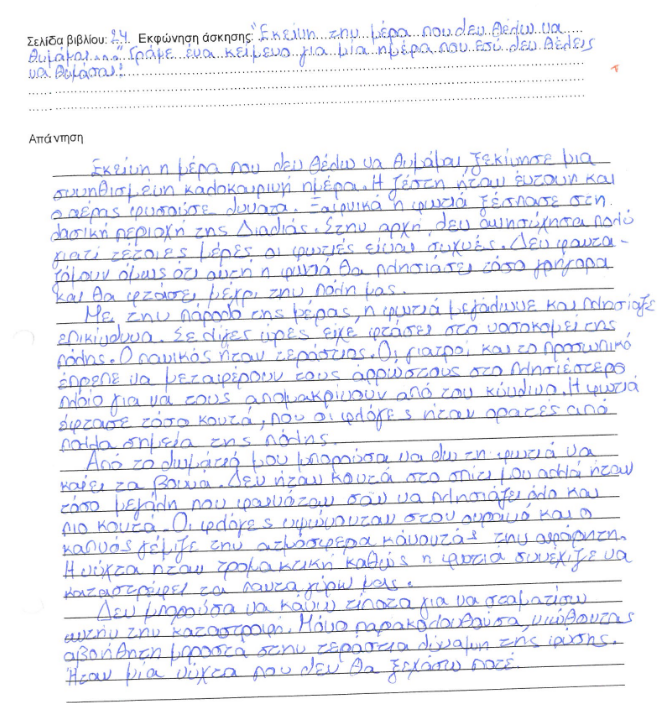 Σελίδα βιβλίου: 24 Εκφώνηση άσκησης: "Εκείνη την μέρα που δεν θέλω να
θυμάμαι..." Γράψε ένα κείμενο για μια ημέρα που εσύ δεν θέλεις
να θυμάσαι!
Απάντηση
Εκείνη η μέρα που δεν θέλω να θυμάμαι, ξεκίνησε μια
συνηθισμένη καλοκαιρινή ημέρα. Η ζέστη ήταν έντονη και
ο αέρας φυσούσε δυνατα. Ξαφνικά η φωτιά ξέσπασε στη
δασική περιοχή της Διαδιάς. Στην αρχή, δεν ανησύχησα πολύ
γιατί τέτοιες μέρες οι φωτιές είναι συχνές. Δεν φαντα-
ζόμουν όμως ότι αυτη η φωτιά θα πλησιάσει τόσο γρήγορα
και θα φτάσει μέχρι την πόλη μας.
Με την πάροδο της μέρας, η φωτιά μεγάλωνε και πλησίαζε
επικίνδυνα. Σε λίγες ώρες είχε φτάσει στο νοσοκομεί της
πόλης. Ο πανικός ήταν τεράστιος. Οι γιατροί και το προσωπικό
έπρεπε να μεταφέρουν τους αρρώστους στο πλησιέστερο
πλοίο για να τους απομακρίνουν από τον κίνδυνο. Η φωτιά
έφτασε τόσο κοντά, που οι φλόγες ήταν ορατές από
πολλά σημεία της πόλης.
Από το δωμάτιό μου μπορούσα να δω τη φωτιά να
καίει τα βουνα. Δεν ήταν κοντά στο σπίτι μου αλλά ήταν
τόσο μεγάλη που φαινόταν σαν να πλησιάζει όλο και
πιο κοντα. Οι φλόγες υψώνονταν στον ουρανό και ο
καπνός γέμιζε την ατμόσφερα κάνοντάς την αφόρητη.
Η νύχτα ήταν τρομακτική καθώς η φωτιά συνέχιζε να
καταστρέφει τα παντα γύρω μας.
Δεν μπορούσα να κάνω τίποτα για να σταματίσω
αυτήν την καταστροφή. Μόνο παρακολουθούσα, νιώθοντας
αβοήθητη μπροστά στην τεράστια δύναμη της φύσης.
Ήταν μία νύχτα που δεν θα ξεχάσω ποτέ.